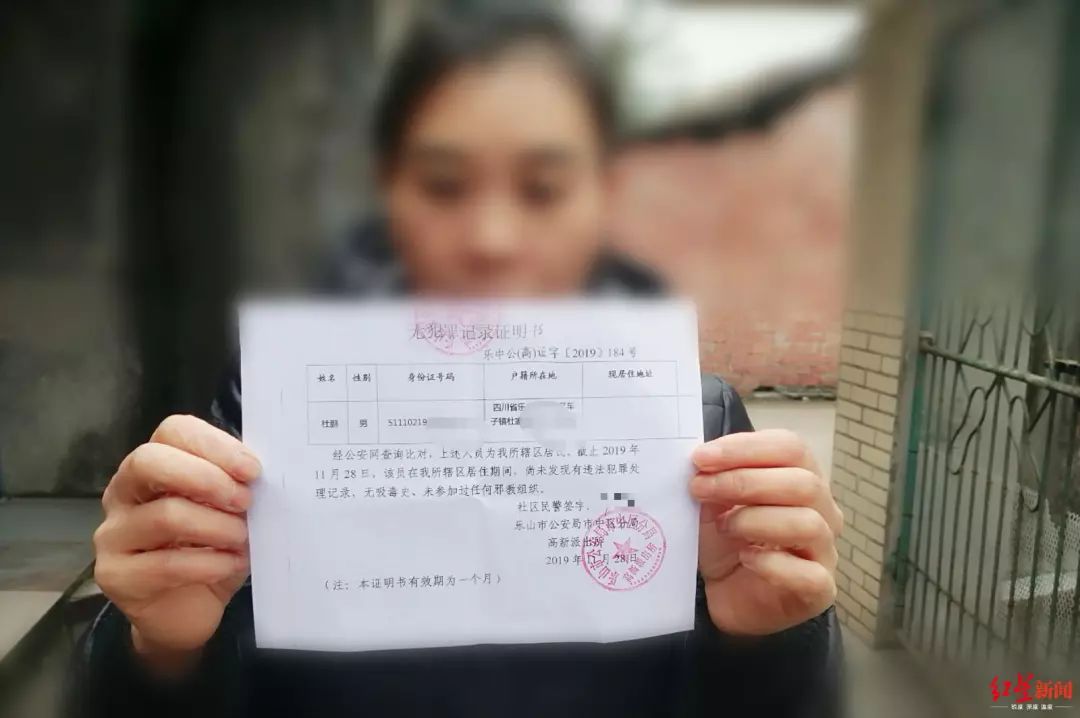 无犯罪记录证明书
乐中公(高)证字〔2019〕184号
姓名 性别 身份证号码 户籍所在地 现居住地址
杜鹏 男 51110219 四川省乐 车
子镇杜
经公安网查询比对，上述人员为我所辖区居民，截止2019年
11月28日，该员在我所辖区居住期间，尚未发现有违法犯罪处
理记录、无吸毒史、未参加过任何邪教组织。
社区民警签字：
乐山市公安局市中区分局
高新派出所
2019年11月28日
（注：本证明书有效期为一个月）
红星新闻